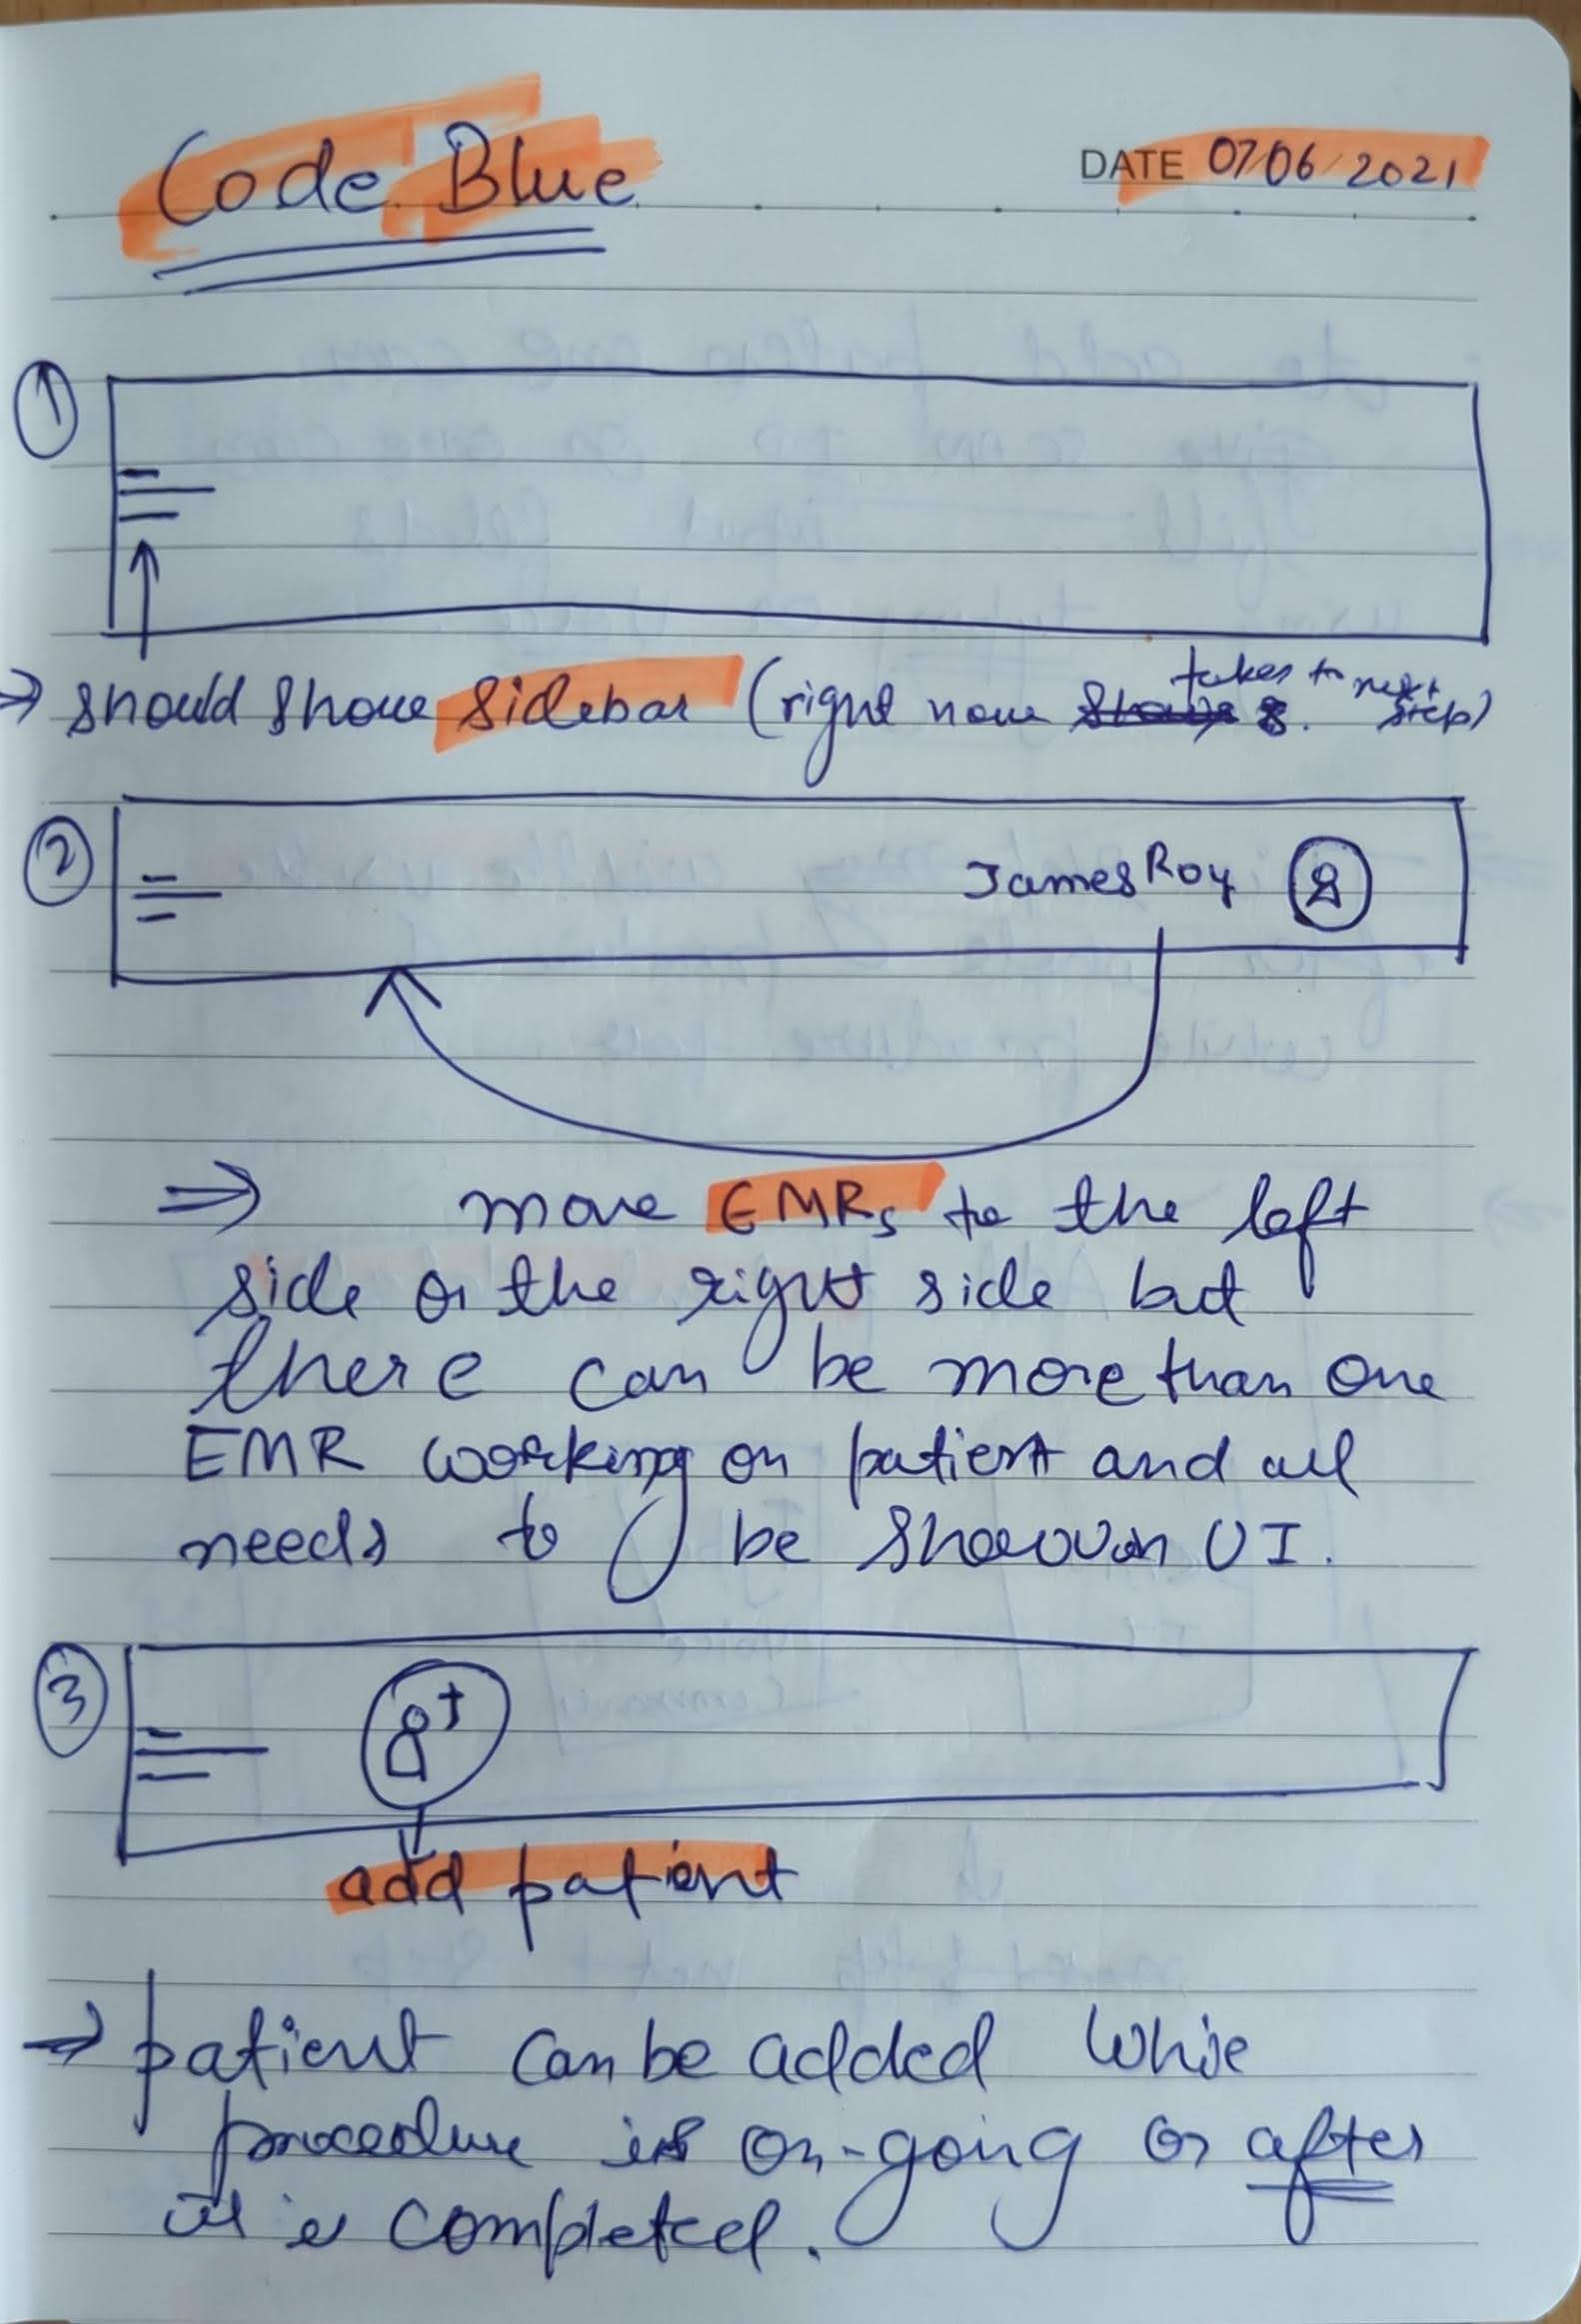 Code Blue
DATE 07/06/2021
1
⇒ should show sidebar (right now takes to next step)
2
James Roy
⇒ move EMRs to the left
side or the right side but
there can be more than one
EMR working on patient and all
needs to be shown on UI.
3
add patient
→ patient can be added while
procedure is on-going or after
it is completed.